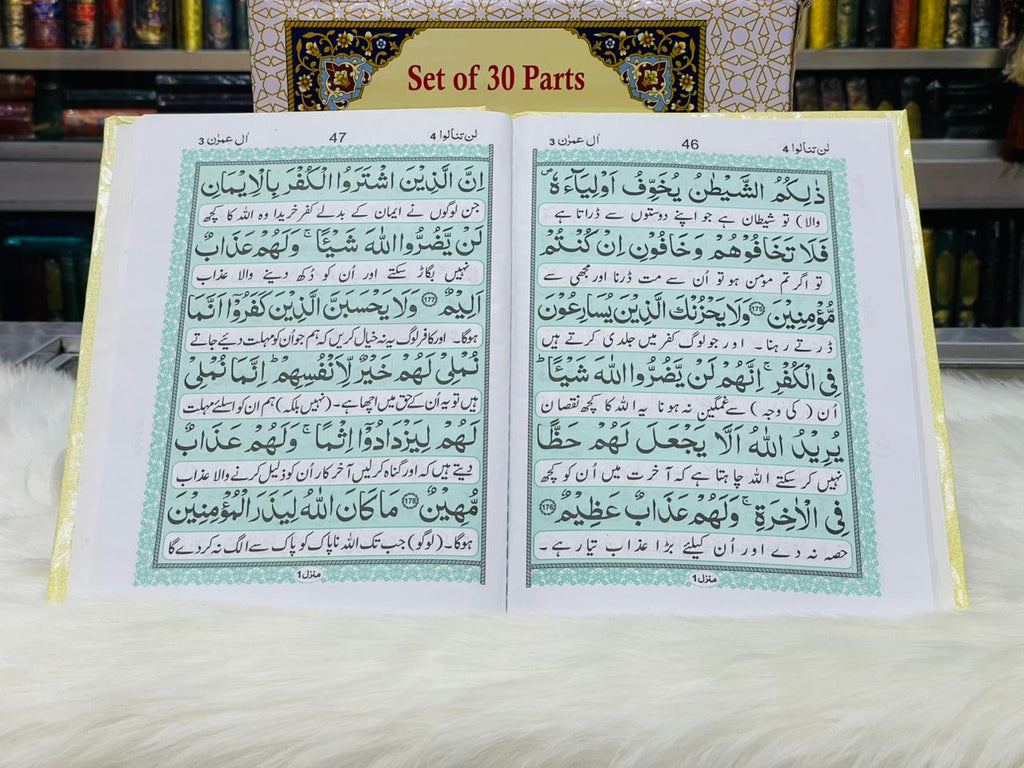 Set of 30 Parts
لن تنالوا 4
46
اٰل عمرٰن 3
ذٰلِكُمُ الشَّيْطٰنُ يُخَوِّفُ اَوْلِيَآءَهٗ ۪
والا) تو شیطان ہے جو اپنے دوستوں سے ڈراتا ہے
فَلَا تَخَافُوْهُمْ وَخَافُوْنِ اِنْ كُنْتُمْ
تو اگر تم مومن ہو تو اُن سے مت ڈرنا اور مجھی سے
مُّؤْمِنِيْنَ ﴿175﴾ وَلَا يَحْزُنْكَ الَّذِيْنَ يُسَارِعُوْنَ
ڈرتے رہنا۔ اور جو لوگ کفر میں جلدی کرتے ہیں
فِي الْكُفْرِ ۚ اِنَّهُمْ لَنْ يَّضُرُّوا اللّٰهَ شَيْـًٔا ؕ
اُن (کی وجہ) سے غمگین نہ ہونا یہ اللہ کا کچھ نقصان
يُرِيْدُ اللّٰهُ اَلَّا يَجْعَلَ لَهُمْ حَظًّا
نہیں کر سکتے اللہ چاہتا ہے کہ آخرت میں اُن کو کچھ
فِي الْاٰخِرَةِ ۚ وَلَهُمْ عَذَابٌ عَظِيْمٌ ﴿176﴾
حصہ نہ دے اور اُن کیلئے بڑا عذاب تیار ہے۔
منزل 1
لن تنالوا 4
47
اٰل عمرٰن 3
اِنَّ الَّذِيْنَ اشْتَرَوُا الْكُفْرَ بِالْاِيْمَانِ
جن لوگوں نے ایمان کے بدلے کفر خریدا وہ اللہ کا کچھ
لَنْ يَّضُرُّوا اللّٰهَ شَيْـًٔا ۚ وَلَهُمْ عَذَابٌ
نہیں بگاڑ سکتے اور اُن کو دُکھ دینے والا عذاب
اَلِيْمٌ ﴿177﴾ وَلَا يَحْسَبَنَّ الَّذِيْنَ كَفَرُوْۤا اَنَّمَا
ہوگا۔ اور کافر لوگ یہ نہ خیال کریں کہ ہم جو اُن کو مہلت دیئے جاتے
نُمْلِيْ لَهُمْ خَيْرٌ لِّاَنْفُسِهِمْ ؕ اِنَّمَا نُمْلِيْ
ہیں تو یہ اُن کے حق میں اچھا ہے۔ (نہیں بلکہ) ہم ان کو اسلئے مہلت
لَهُمْ لِيَزْدَادُوْۤا اِثْمًا ۚ وَلَهُمْ عَذَابٌ
دیتے ہیں کہ اور گناہ کر لیں آخر کار اُن کو ذلیل کرنے والا عذاب
مُّهِيْنٌ ﴿178﴾ مَا كَانَ اللّٰهُ لِيَذَرَ الْمُؤْمِنِيْنَ
ہوگا۔ (لوگو) جب تک اللہ ناپاک کو پاک سے الگ نہ کر دے گا
منزل 1